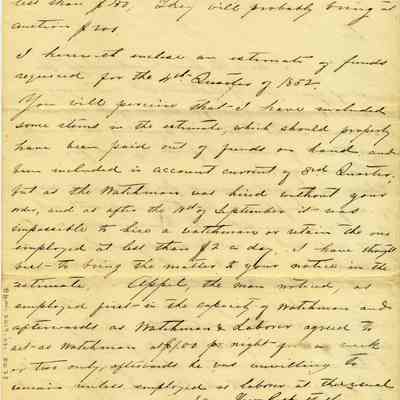 less than $150, They will probably bring at
auction $200
I herewith enclose an estimate of funds
required for the 4th Quarter of 1852.
You will perceive that I have included
some items in the estimate, which should properly
have been paid out of funds on hand and
been included in account current of 3rd Quarter;
but as the Watchman was hired without your
order, and as after the of September it was
impossible to hire a watchman or retain the one
employed at less than $2 a day, I have thought
best to bring the matter to your notice in the
estimate. Appel, the man noticed, as
employed first in the capacity of Watchman and
afterwards as Watchman & Laborer agreed to
act as Watchman at $1.00 pr night for a week
or two only, afterwards he was unwilling to
remain unless employed as laborer at the usual